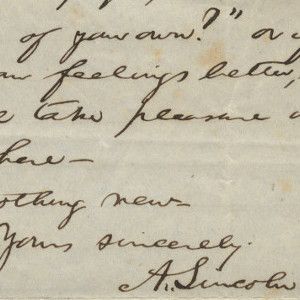 of your own?" or
feelings better,
take pleasure
here—
nothing new—
Yours sincerely.
A. Lincoln